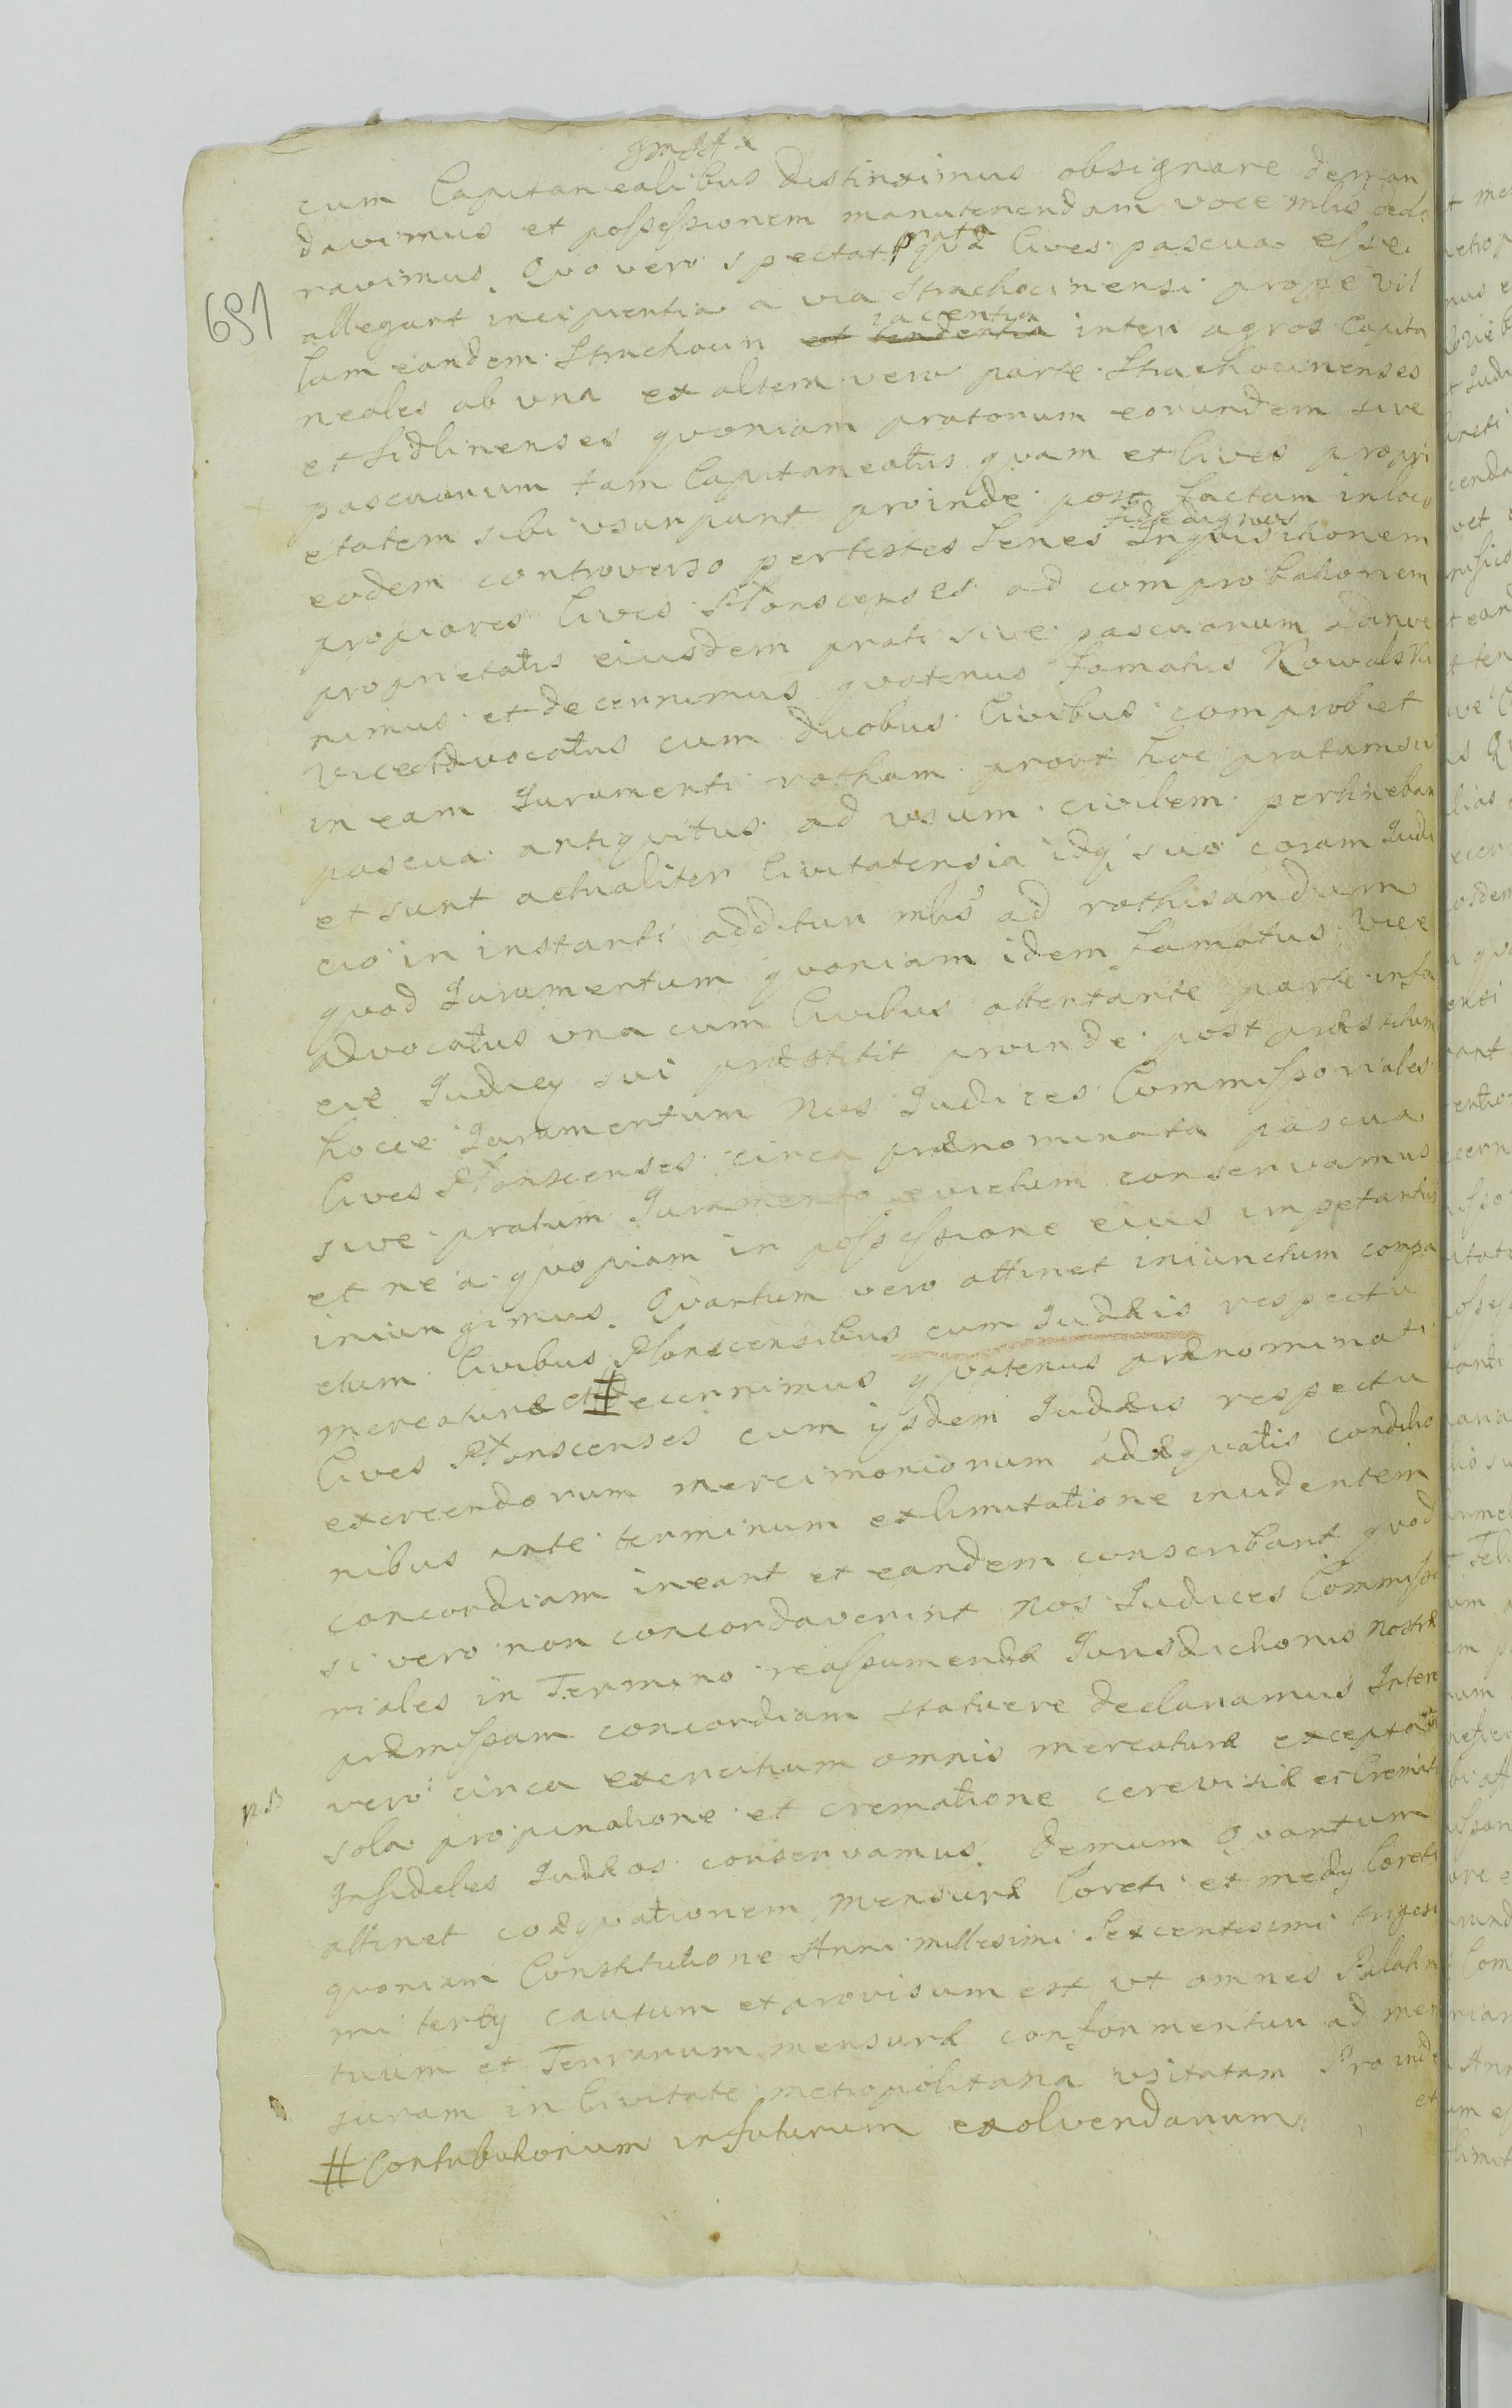 cum Capitanealibus distinximus obsignare deman
davimus et possessionem manutenendam voce mlis decla
ravimus. Quo vero spectat prata quæ Cives pascua esse
691
allegant incipientia a via Strachocinensi prope vil
lam eandem Strachocin et tendentia iacentia inter agros Capita
neales ab una ex altera vero parte Strachocinenses
et Sidlinenses quoniam pratorum eorundem sive
pascuorum tam Capitaneatus quam et Cives propri
etatem sibi usurpant proinde post factam in loco
eodem controverso per testes Senes fide dignos Inquisitionem
propiores Cives Płonscenses ad comprobationem
proprietatis eiusdem prati sive pascuorum adinve
nimus et decernimus quatenus famatus Kowalski
Viceadvocatus cum duobus Civibus comprobet
in eam Juramenti rotham prout hoc pratum siv
pascua antiquitus ad usum civilem pertinebant
et sunt actualiter Civitatensia idq suo coram Judi
cio in instanti additur mlis ad rothisandum
quod Juramentum quoniam idem famatus Vice
advocatus una cum Civibus attentante parte infa
cie Judicy sui præstitit proinde post præstitum
hocce Juramentum Nos Judices Commissoriales
Cives Płonscenses circa prænominata pascua
sive pratum Juramento evictum conservamus
et ne a quopiam in possessione eius impetantur
iniungimus. Quantum vero attinet iniunctum compa
ctum Civibus Płonscensibus cum Judæis respectu
mercaturæ et # decernimus quatenus prænominati
Cives Płonscenses cum ijsdem Judæis respectu
exercendorum mercimoniorum adæquatis conditio
nibus ante terminum ex limitatione incidentem
concordiam ineant et eandem conscribant quod
si vero non concordaverint Nos Judices Commisso
riales in Termino reassumendæ Jurisdictionis Nostræ
præmissam concordiam statuere declaramus Inter
vero circa exercitium omnis mercaturæ excepta
sola propinatione et crematione cerevisiæ et Cremati
Infideles Judæos conservamus. Demum Quantum
attinet coæquationem mensuræ Coreti et medij Coreti
quoniam Constitutione Anni millesimi Sexcentesimi trigesi
mi tertij cautum et provisum est ut omnes Palatin
tuum et Terrarum mensuræ conformentur ad men
suram in Civitate metropolitana usitatam Proinde
et
# Contributionum in futurum exolvendarum